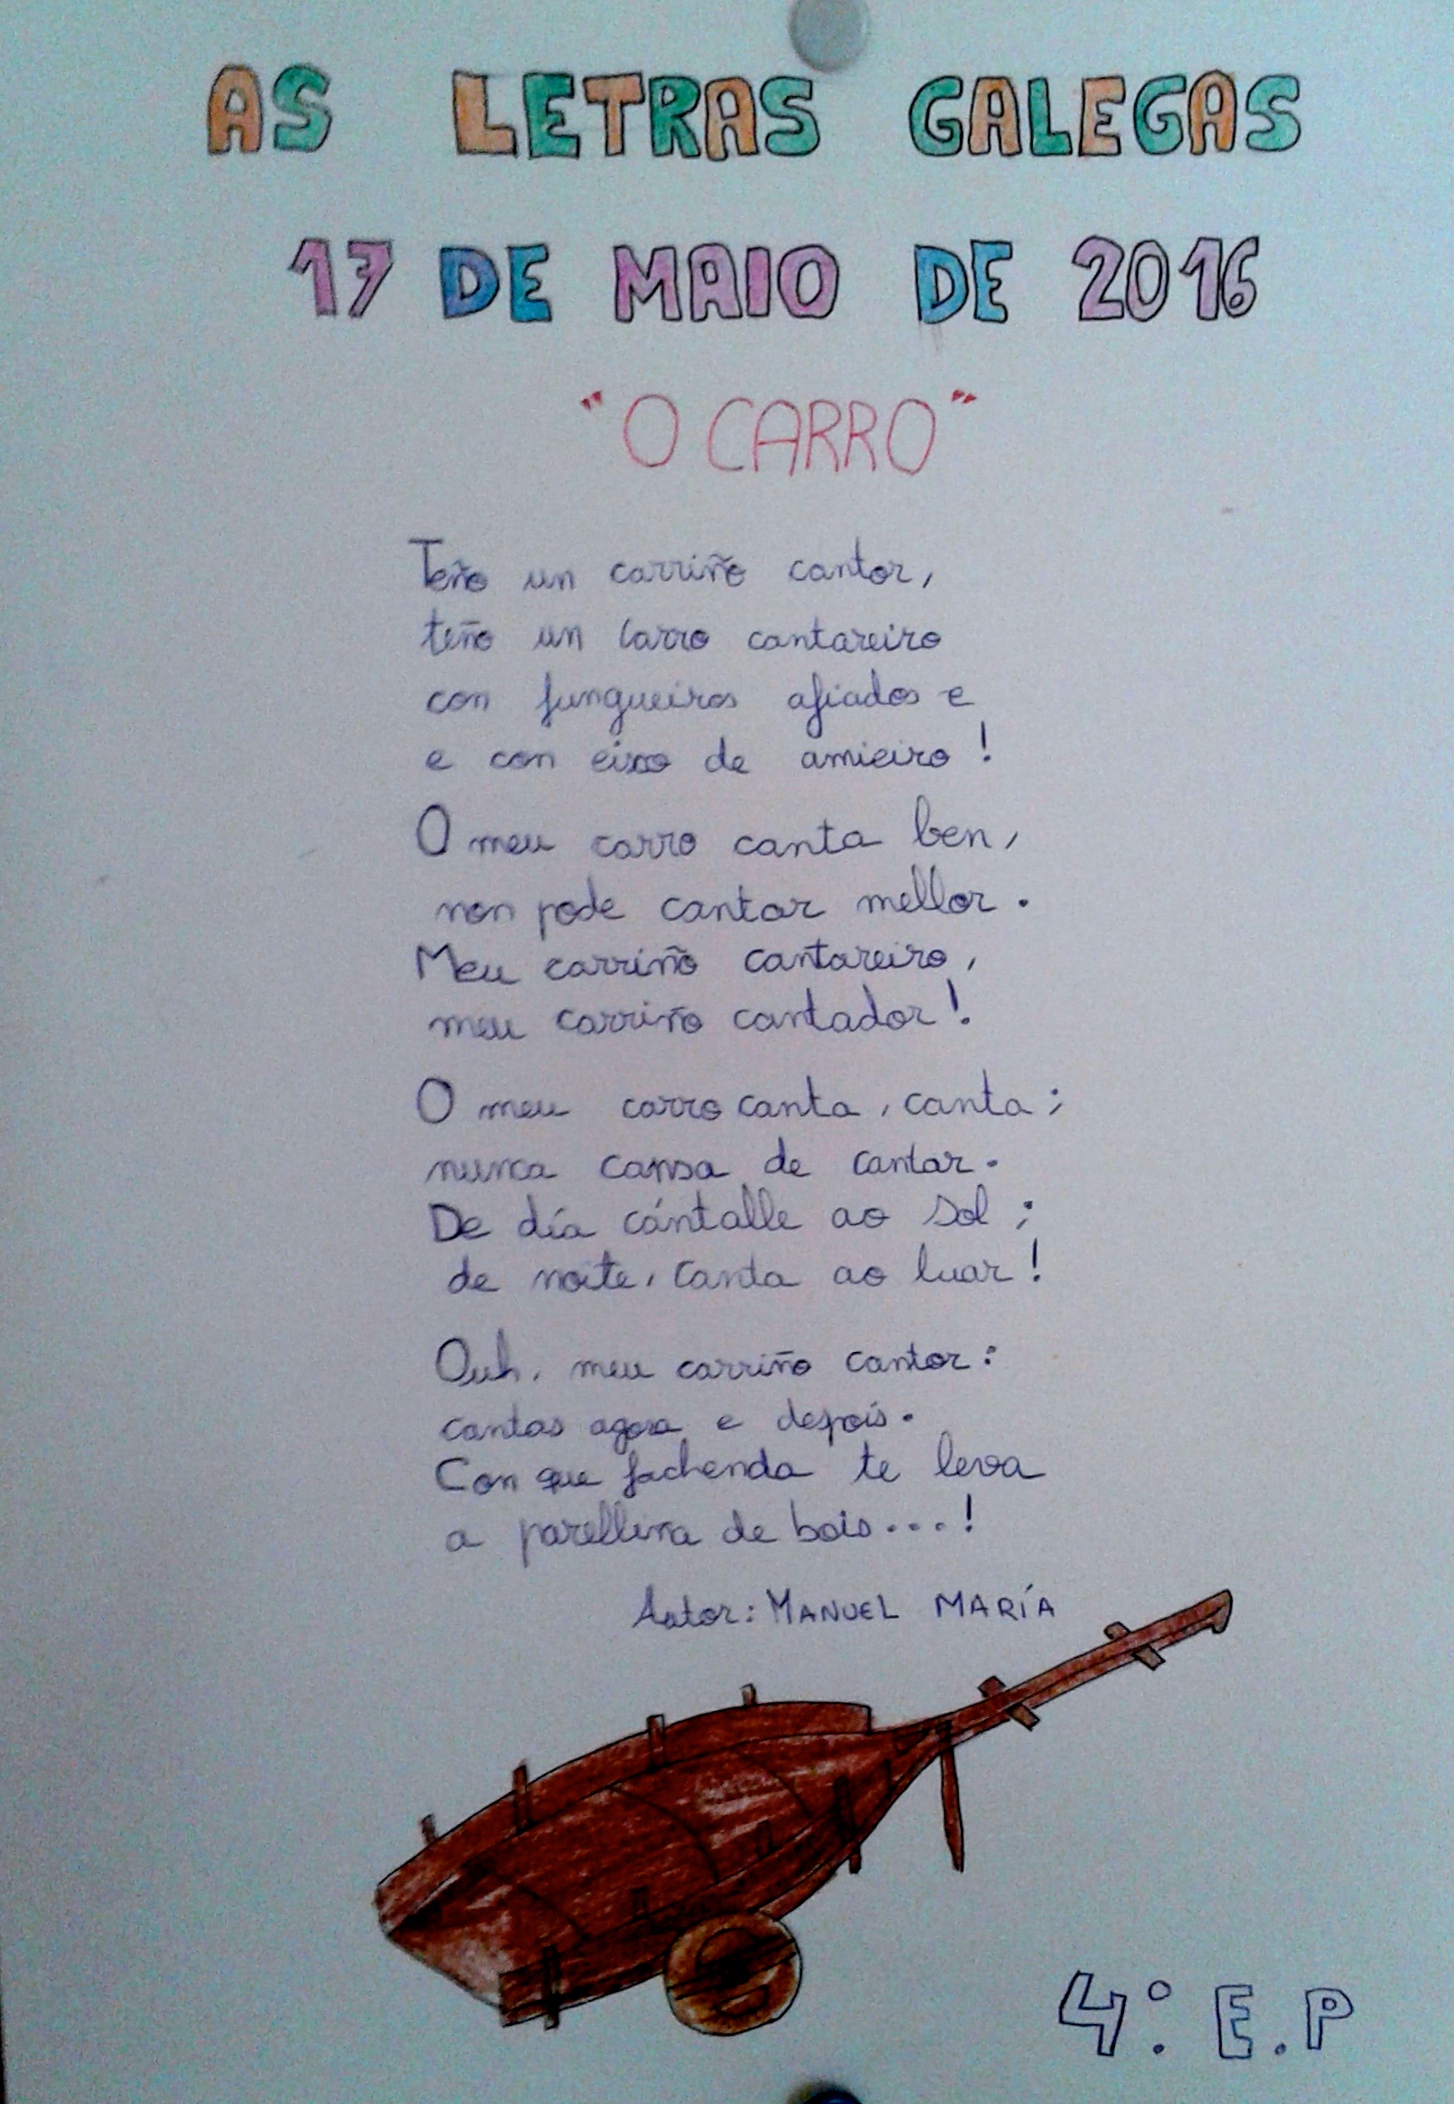 AS LETRAS GALEGAS
17 DE MAIO DE 2016
"O CARRO"
Teño un carriño cantor,
teño un carro cantareiro
con fungueiros afiados e
e con eixo de amieiro!
O meu carro canta ben,
non pode cantar mellor.
Meu carriño cantareiro,
meu carriño cantador!
O meu carro canta, canta;
nunca cansa de cantar.
De día cántalle ao sol;
de noite, canta ao luar!
Ouh, meu carriño cantor:
cantas agora e depois.
Con que fachenda te leva
a parelliña de bois...!
Autor: MANUEL MARÍA
4º. E.P